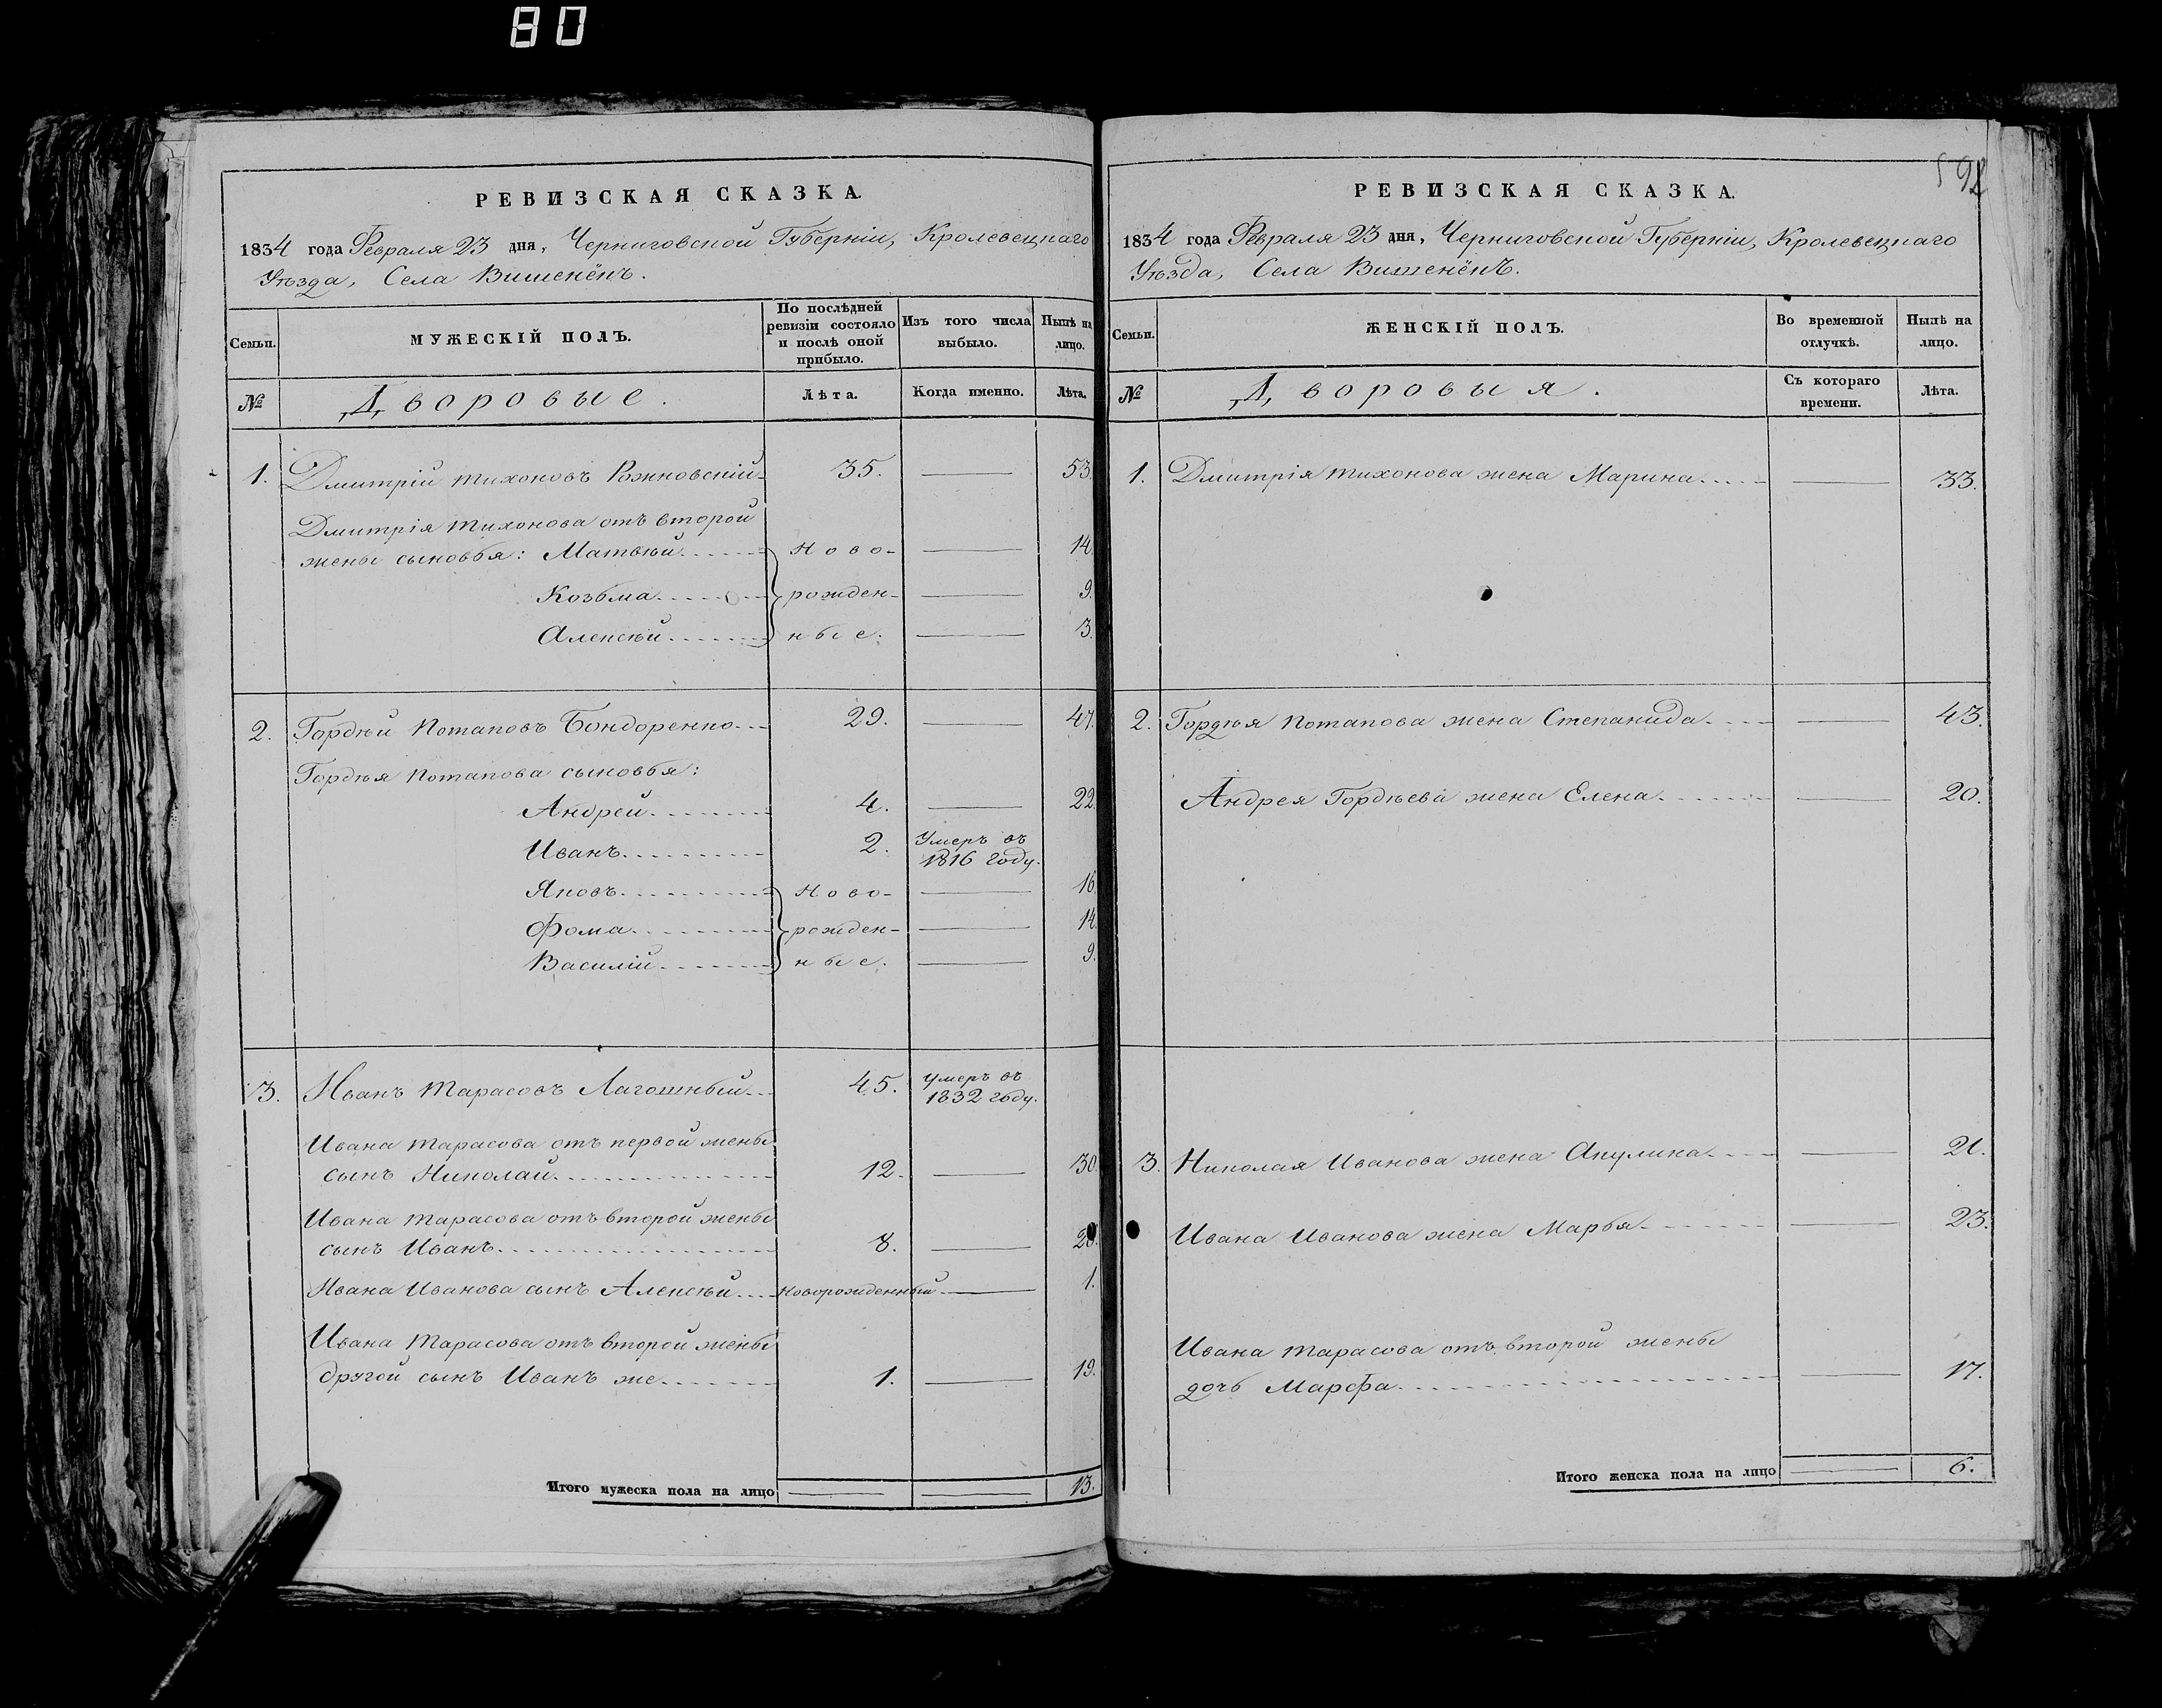 80
РЕВИЗСКАЯ СКАЗКА.
1834 года Февраля 23 дня, Черниговской Губерніи, Кролевецкаго
Уѣзда, Села Вишенёкъ.
Семьи.
МУЖЕСКІЙ ПОЛЪ.
По послѣдней ревизіи состояло и послѣ оной прибыло.
Изъ того числа выбыло.
Нынѣ на лицо.
№
Дворовые.
Лѣта.
Когда именно.
Лѣта.
1. Дмитрій Тихоновъ Рожновскій 35. 53.
Дмитрія Тихонова отъ второй
жены сыновья: Матвѣй Ново- 14.
Козьма рожден- 9.
Алексѣй ные. 3.
2. Гордѣй Потаповъ Бондоренко 29. 47.
Гордѣя Потапова сыновья:
Андрей 4. 22.
Иванъ 2. Умеръ въ 1816 году.
Яковъ Ново- 16.
Фома рожден- 14.
Василій ные. 9.
3. Иванъ Тарасовъ Лагошный 45. умеръ въ 1832 году.
Ивана Тарасова отъ первой жены
сынъ Николай 12. 30.
Ивана Тарасова отъ второй жены
сынъ Иванъ 8.
Ивана Иванова сынъ Алексѣй Новорожденный 1.
Ивана Тарасова отъ второй жены
другой сынъ Иванъ же 1. 19.
Итого мужеска пола на лицо 13.
592
РЕВИЗСКАЯ СКАЗКА.
1834 года Февраля 23 дня, Черниговской Губерніи, Кролевецкаго
Уѣзда, Села Вишенёкъ.
Семьи.
ЖЕНСКІЙ ПОЛЪ.
Во временной отлучкѣ.
Нынѣ на лицо.
№
Дворовыя.
Съ котораго времени.
Лѣта.
1. Дмитрія Тихонова жена Марина 33.
2. Гордѣя Потапова жена Степанида 43.
Андрея Гордѣева жена Елена 20.
3. Николая Иванова жена Акулина 21.
Ивана Иванова жена Марья 23.
Ивана Тарасова отъ второй жены
дочь Марфа 17.
Итого женска пола на лицо 6.